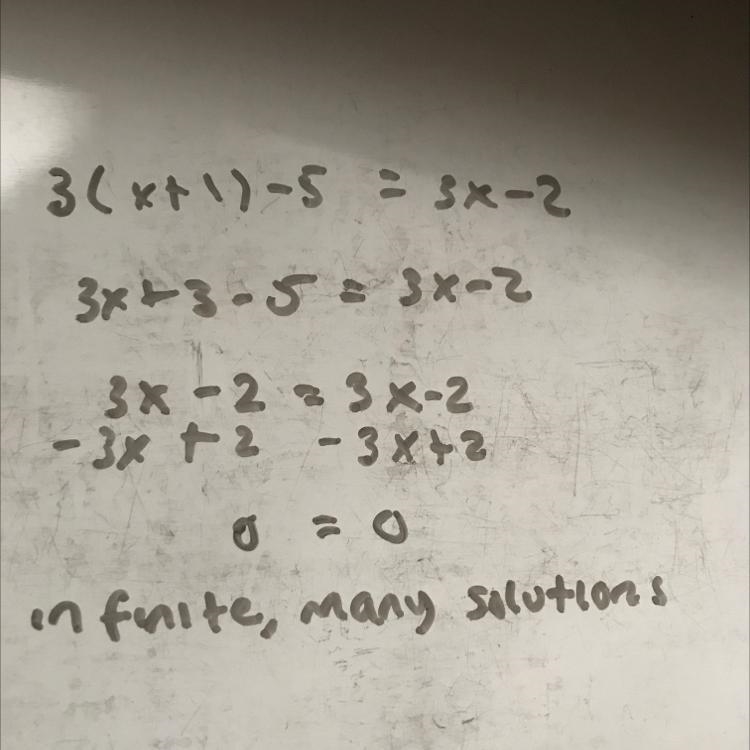 3(x+1)-5 = 3x-2
3x+3-5 = 3x-2
3x-2 = 3x-2
-3x+2 -3x+2
0 = 0
infinite, many solutions